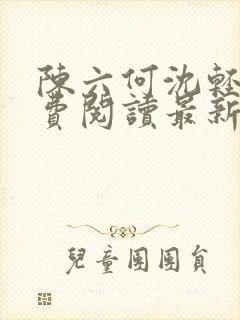 陳六何沈輕
費閱讀最新
兒童團團員